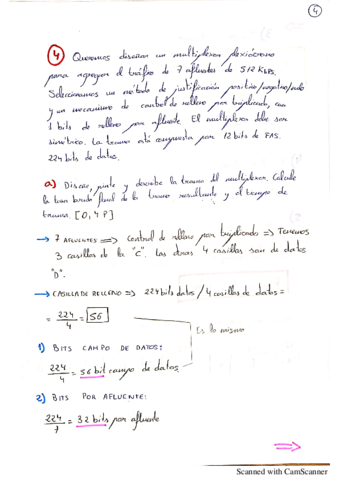 4
4 Queremos diseñar un multiplexor plesiócrono
para agregar el tráfico de 7 afluentes de 512 Kbps.
Seleccionamos un método de justificación positivo/negativo/nulo
y un mecanismo de control de relleno por triplicado, con
1 bits de relleno por afluente. El multiplexor debe ser
simétrico. La trama está compuesta por 12 bits de FAS.
224 bits de datos.
a) Disear, pinte y describa la trama del multiplexor. Calcule
la tasa binaria final de la trama resultante y el tiempo de
trama. [0,4 P]
→ 7 AFLUENTES => Control de relleno por triplicado => Tenemos
3 casillas de la "C". Las otras 4 casillas son de datos
"D".
→ CASILLA DE RELLENO => 224 bits datos / 4 casillas de datos =
= 224/4 = 56
Es lo mismo
1) BITS CAMPO DE DATOS:
224/4 = 56 bit campo de datos
2) BITS POR AFLUENTE:
224/7 = 32 bits por afluente
Scanned with CamScanner